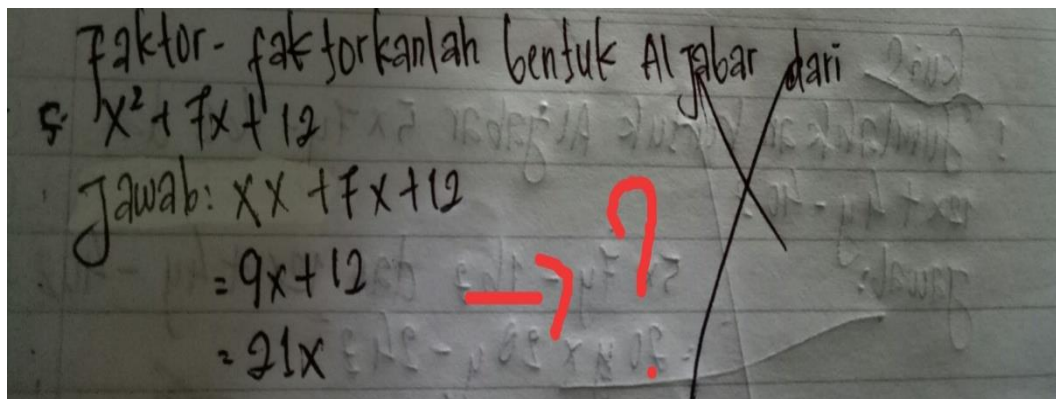 Faktor-faktorkanlah bentuk Aljabar dari
5. x² + 7x + 12
Jawab: xx + 7x + 12
= 9x + 12
= 21x
?